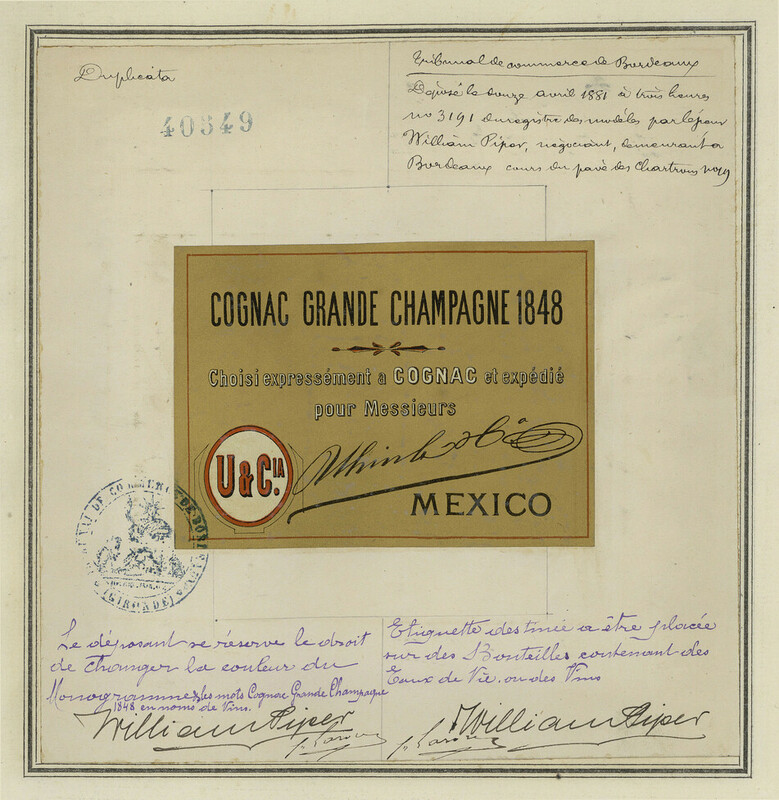 Duplicata
40549
Tribunal de commerce de Bordeaux
Déposé le douze avril 1881 à trois heures
no 3191 du registre des modèles par le sieur
William Piper, négociant, demeurant à
Bordeaux cours du pavé des Chartrons no 29
COGNAC GRANDE CHAMPAGNE 1848
Choisi expressément a COGNAC et expédié
pour Messieurs
U & C.IA
MEXICO
TRIBUNAL DE COMMERCE DE BORDEAUX
(GIRONDE)
Le déposant se réserve le droit
de changer la couleur du
Monogramme & les mots Cognac Grande Champagne
1848 en noms de Vins.
William Piper
Etiquette destinée a être placée
sur des Bouteilles contenant des
Eaux de Vie ou des Vins
William Piper